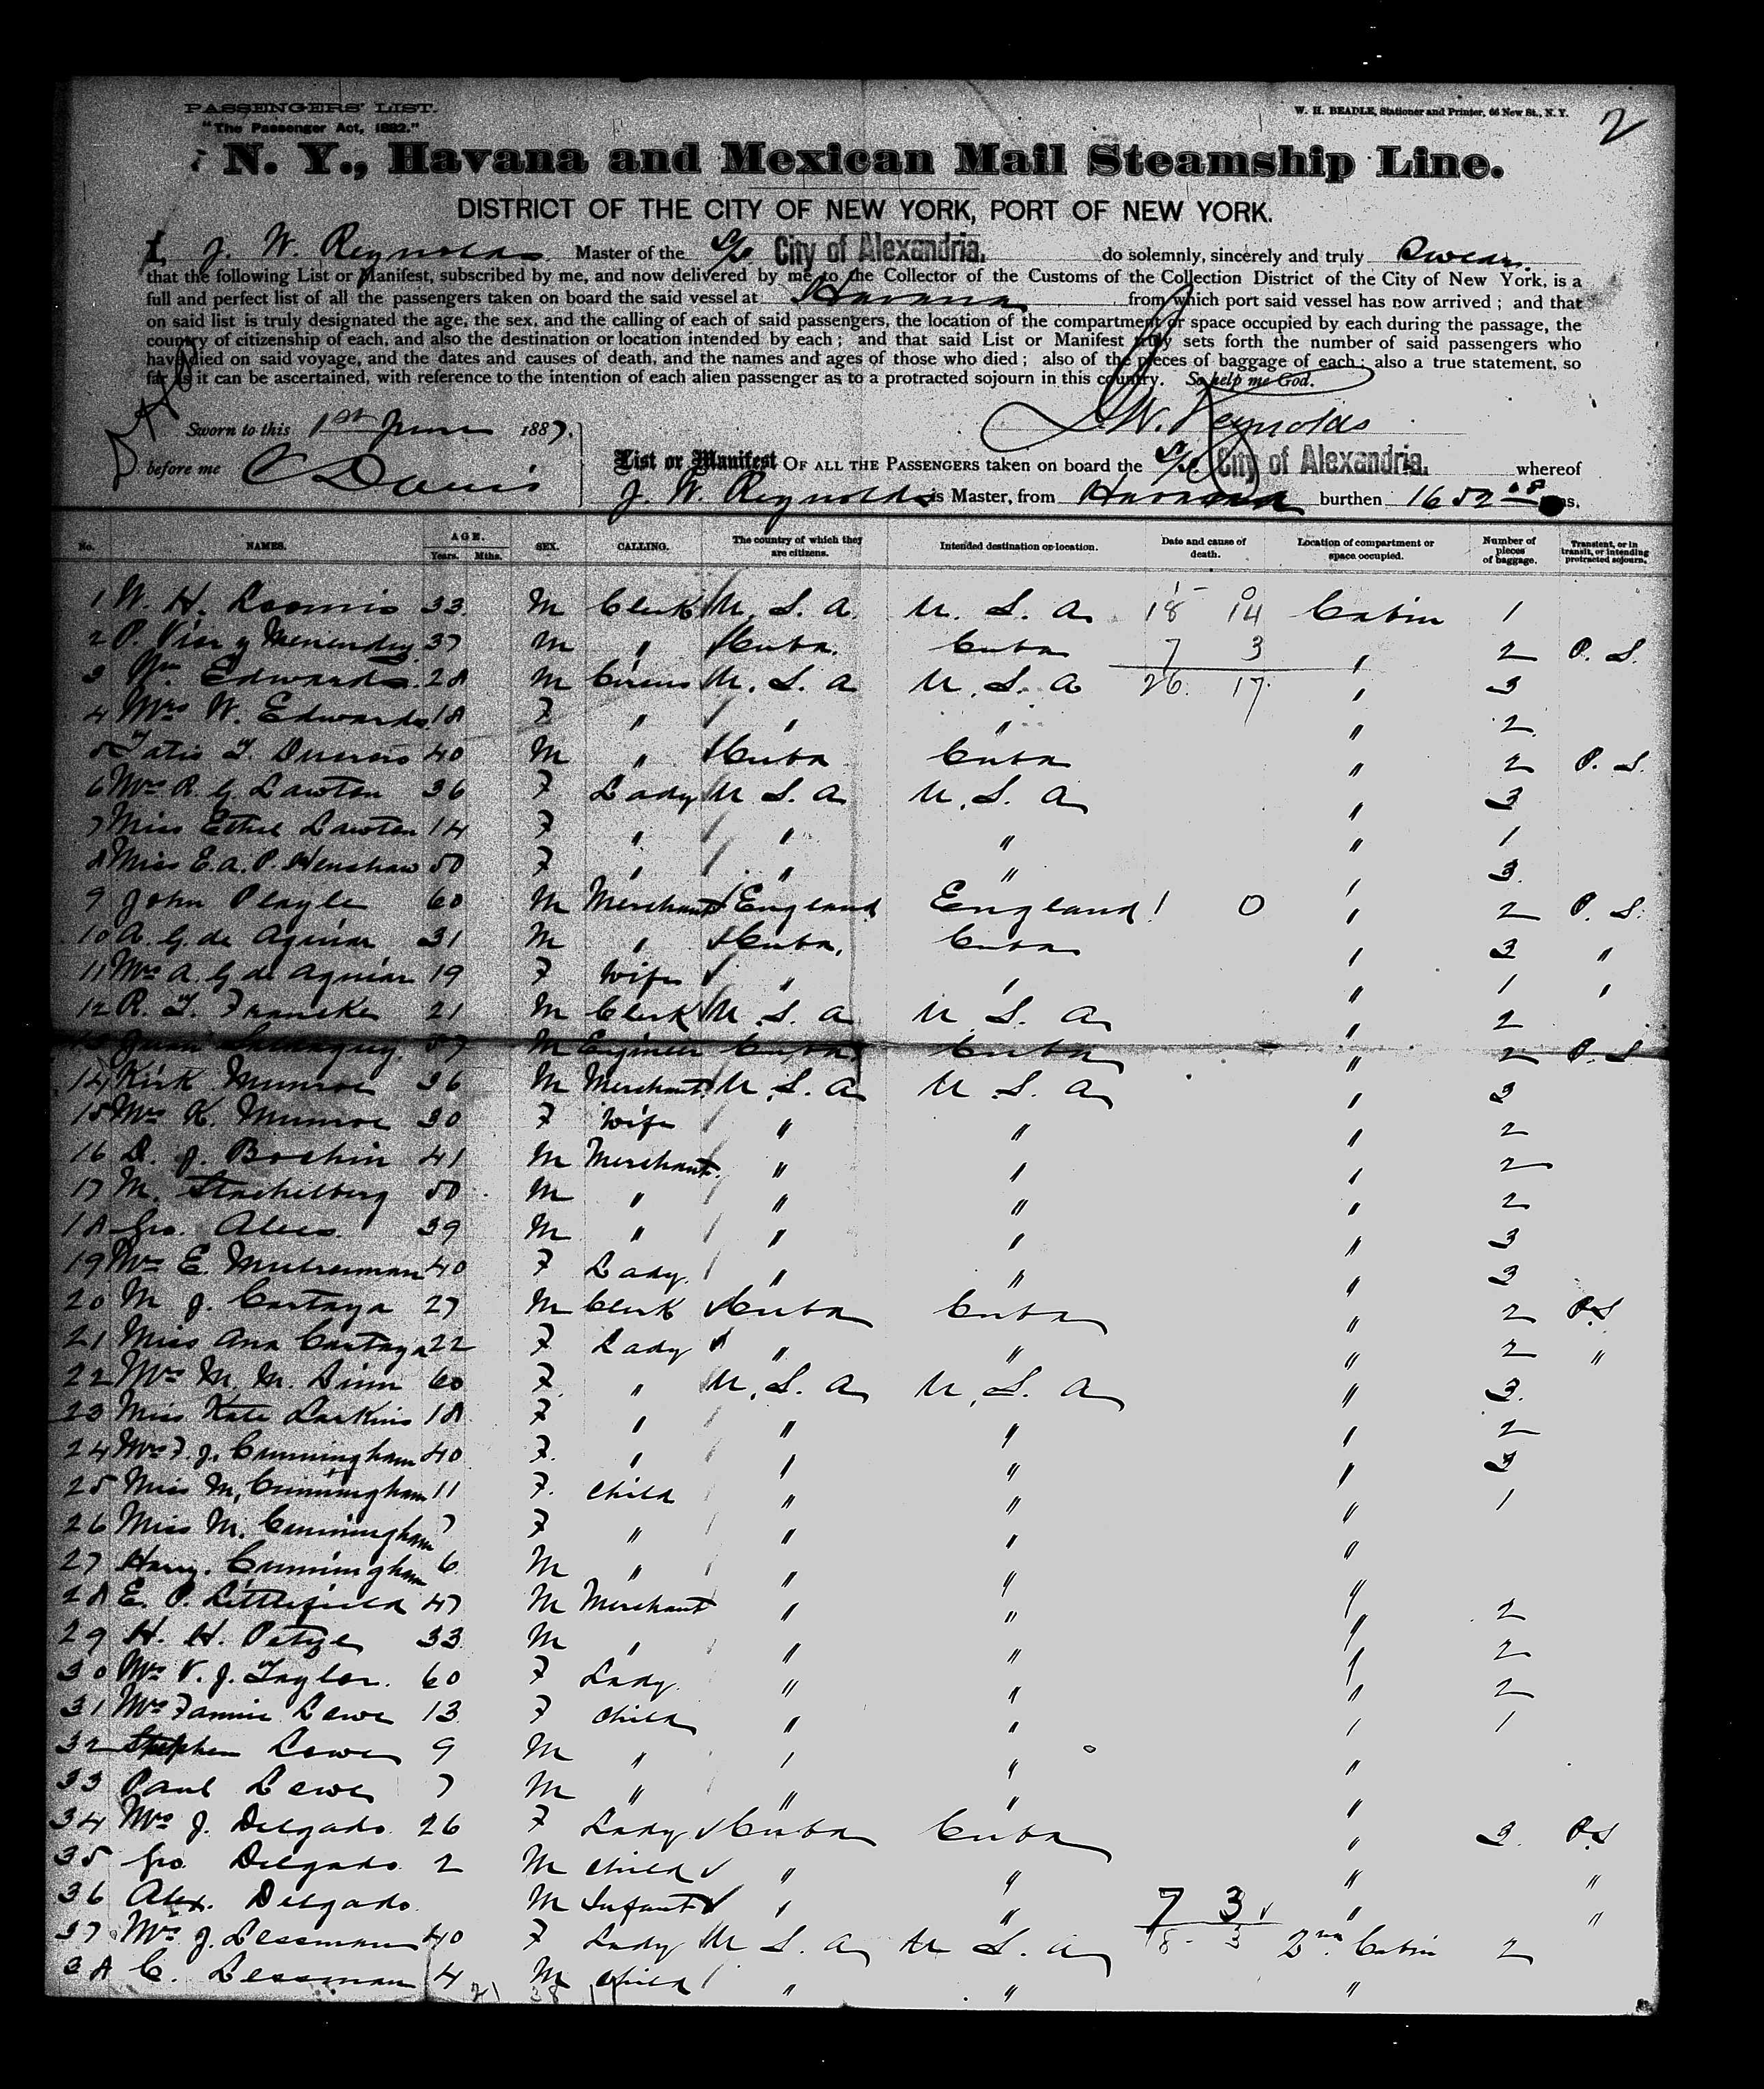 PASSENGERS' LIST.
"The Passenger Act, 1882."
W. H. BEADLE, Stationer and Printer, 66 New St., N. Y.
2
N. Y., Havana and Mexican Mail Steamship Line.
DISTRICT OF THE CITY OF NEW YORK, PORT OF NEW YORK.
I, J. W. Reynolds Master of the S/S City of Alexandria. do solemnly, sincerely and truly Swear.
that the following List or Manifest, subscribed by me, and now delivered by me to the Collector of the Customs of the Collection District of the City of New York, is a
full and perfect list of all the passengers taken on board the said vessel at Havana from which port said vessel has now arrived; and that
on said list is truly designated the age, the sex, and the calling of each of said passengers, the location of the compartment or space occupied by each during the passage, the
country of citizenship of each, and also the destination or location intended by each; and that said List or Manifest truly sets forth the number of said passengers who
have died on said voyage, and the dates and causes of death, and the names and ages of those who died; also of the pieces of baggage of each; also a true statement, so
far as it can be ascertained, with reference to the intention of each alien passenger as to a protracted sojourn in this country. So help me God.
Sworn to this 1st June 1887.
J. W. Reynolds
before me C Davis
List or Manifest OF ALL THE PASSENGERS taken on board the S/S City of Alexandria. whereof
J. W. Reynolds is Master, from Havana burthen 1652 .08
No. NAMES. AGE. Years. Mths. SEX. CALLING. The country of which they are citizens. Intended destination or location. Date and cause of death. Location of compartment or space occupied. Number of pieces of baggage. Transient, or in transit, or intending protracted sojourn.
1 W. H. Loomis 33 M Clerk U. S. A. U. S. A 18 14 Cabin 1
2 P. Menendez 37 M " Cuba. Cuba 7 3 " 2 P. S.
3 Wm. Edwards. 28 M Circus U. S. A U. S. A 26. 17. " 3
4 Mrs W. Edwards 18 F " " " " 2
5 40 M " Cuba Cuba " 2 P. S.
6 Mrs R. G. Lawton 36 F Lady U S. A U. S. A " 3
7 Miss Ethel Lawton 14 F " " " " 1
8 Miss E. A. P. Henshaw 50 F " " " " 3.
9 John Playle 60 M Merchant England England 1 0 " 2 P. S.
10 A. G. de Aguiar 31 M " Cuba, Cuba " 3 "
11 Mrs A. G de Aguiar 19 F Wife " " " 1 "
12 R. T. Francke 21 M Clerk U. S. A U S. A " 2
13 Juan 57 M Engineer Cuba Cuba " 2 P. S
14 Kirk Munroe 36 M Merchant U. S. A U. S. A " 3
15 Mrs K. Munroe 30 F Wife " " " 2
16 D. J. Bochin 41 M Merchant. " " " 2
17 M. Stachelberg 50 M " " " " 2
18 Geo. Alces. 39 M " " " " 3
19 Mrs E. 40 F Lady. " " " 3
20 M J. Cartaya 27 M Clerk Cuba Cuba " 2 P.S
21 Miss Ana Cartaya 22 F Lady " " " 2 "
22 Mrs M. M. Sinn 60 F. " U. S. A U. S. A " 3.
23 Miss Kate Larkins 18 F " " " " 2
24 Mrs F. J. Cunningham 40 F. " " " " 3
25 Miss M. Cunningham 11 F. Child " " " 1
26 Miss M. Cunningham 7 F " " " "
27 Harry. Cunningham 6 M " " " "
28 E. P. Littlefield 47 M Merchant " " " 2
29 H. H. Petze 33 M " " " " 2
30 Mrs V. J. Taylor. 60 F Lady. " " " 2
31 Mrs Fannie Lowe 13 F Child " " " 1
32 Stephen Lowe 9 M " " " "
33 Paul Lowe 7 M " " " "
34 Mrs J. Delgado 26 F Lady Cuba Cuba " 3. P.S
35 Geo. Delgado. 2 M Child " " " "
36 Alex. Delgado. M Infant " " 7 3 " "
37 Mrs J. Lessman 40 F Lady U S. A U S. A 18. 3 2nd. Cabin 2
38 C. Lessman 4 M Child " " "
21 38